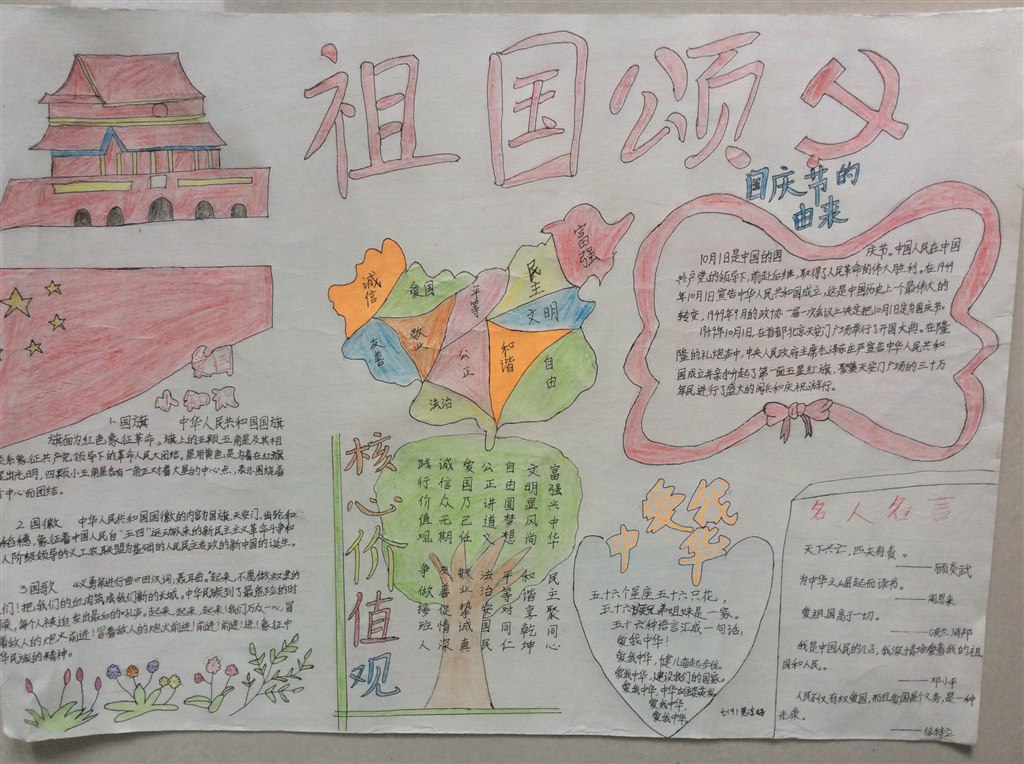 祖国颂
国庆节的
由来
10月1日是中国的国 庆节。中国人民在中国
共产党的领导下,前赴后继,取得了人民革命的伟大胜利。在1949
年10月1日宣告中华人民共和国成立,这是中国历史上一个最伟大的
转变,1949年9月的政协一届一次会议上决定把10月1日定为国庆节。
1949年10月1日,在首都北京天安门广场举行了开国大典。在隆
隆的礼炮声中,中央人民政府主席毛泽东庄严宣告中华人民共和
国成立并亲手升起了第一面五星红旗,聚集天安门广场的三十万
军民进行了盛大的阅兵和庆祝游行。
诚信
爱国
平等
民主
富强
友善
敬业
公正
和谐
文明
自由
法治
国
小知识
1.国旗 中华人民共和国国旗
旗面为红色象征革命。旗上的五颗五角星及其相
关系象征共产党领导下的革命人民大团结,星用黄色是为着在红旗
显出光明,四颗小五角星各有一角正对着大星的中心点,表示围绕着
中心而团结。
2.国徽 中华人民共和国国徽的内容为国旗、天安门、齿轮和
稻穗,象征着中国人民自“五四”运动以来的新民主主义革命斗争和
人阶级领导的以工农联盟为基础的人民民主专政的新中国的诞生。
3.国歌 《义勇军进行曲》田汉词、聂耳曲。“起来,不愿做奴隶的
们!把我们的血肉筑成我们新的长城,中华民族到了最危险的时
候,每个人被迫发出最后的吼声。起来,起来,起来!我们万众一心,冒
着敌人的炮火前进!冒着敌人的炮火前进!前进!前进!进!象征中
华民族的精神。
核心价值观
富强兴中华 民主聚同心
文明显风尚 和谐享乾坤
自由圆梦想 平等对同仁
公正讲道义 法治安国民
爱国乃己任 敬业势诚真
诚信众元期 友善促情深
践行价值观 争做接班人
爱我
中华
五十六个星座五十六只花,
五十六族兄弟姐妹是一家。
五十六种语言汇成一句话:
爱我中华!
爱我中华,健儿奋起步伐。
爱我中华,建设我们的国家。
爱我中华,中华
爱我中华,
爱我中华
七(9)
名人名言
天下兴亡,匹夫有责。
——顾炎武
为中华之崛起而读书。
——周恩来
爱祖国高于一切。
我是中国人民的儿子,我深情地爱着我的祖
国和人民。
——邓小平
人民不仅有权爱国,而且爱国是个义务,是一种
光荣。
——徐特立